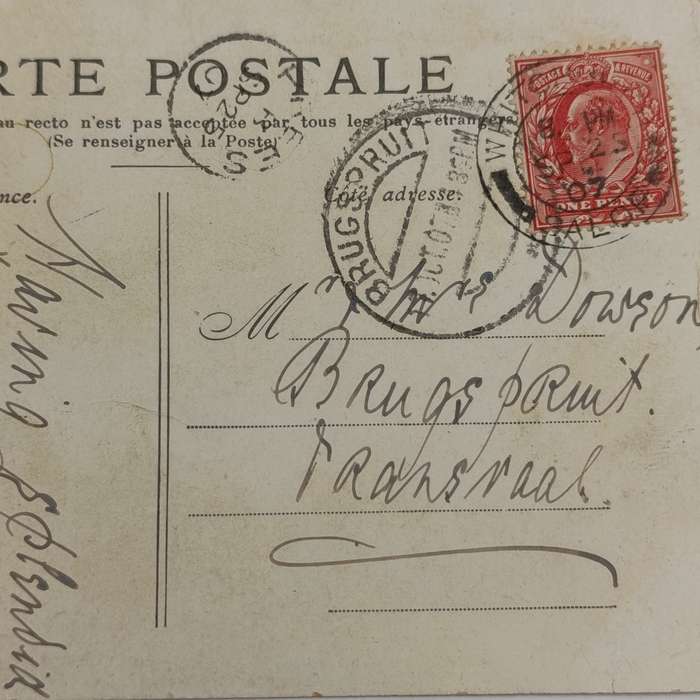 RTE POSTALE
au recto n'est pas acceptée par tous les pays étrangers
(Se renseigner à la Poste)
nce.
Côté adresse.
POSTAGE & REVENUE
ONE PENNY
BRUGSPRUIT
PM
25
07
Mr & Mrs Dowson
Brugspruit.
Transvaal.
Having Splendid